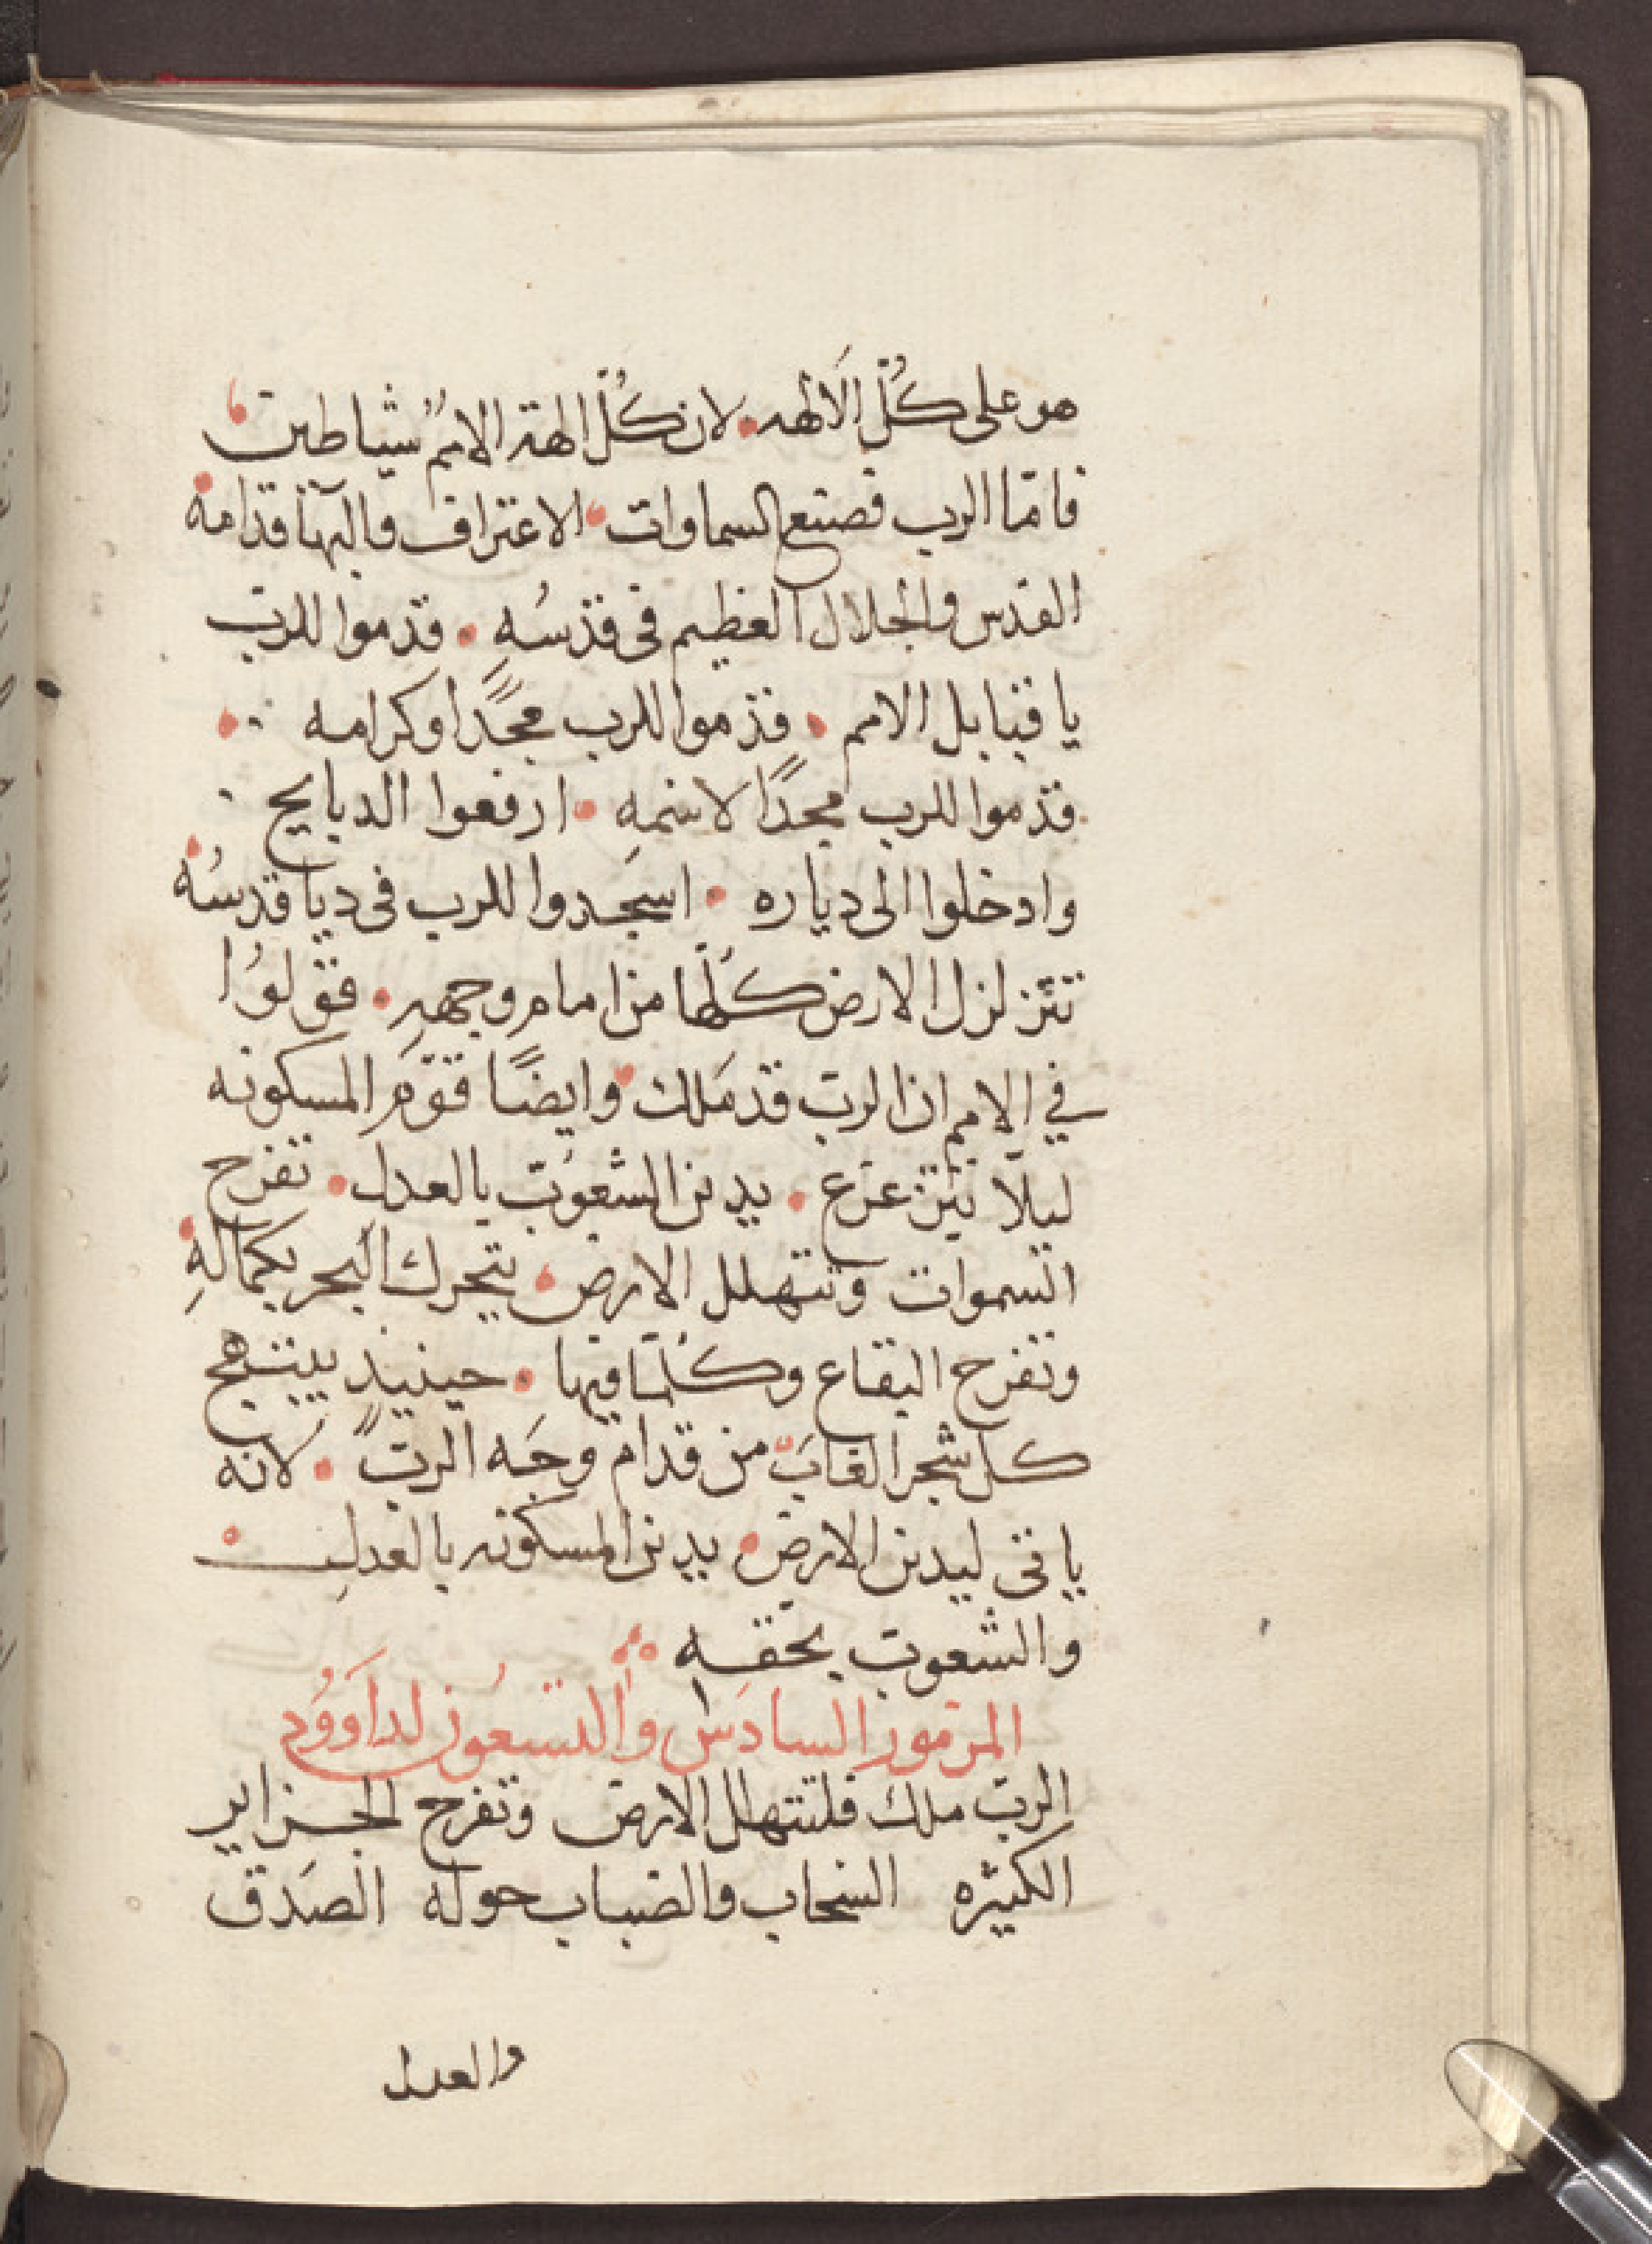 هو على كُلّ الَالهه . لان كُلّ الهة الامم شياطين
فامّا الرب فصنع السماوات . الاعتراف والبها قدامه
القدس والجلال العظيم فى قدسُهِ . قدموا للرب
يا قبايل الامم . قدموا للرب مجدًا وكرامه .
قدموا للرب مجدًا لاسمهِ . ارفعوا الدبايح
وادخلوا الى دياره . اسجدوا للرب فى ديا قدسُه
تتزلزل الارض كلّها من امام وجههِ . فقولوُا
في الامم ان الرب قد مَلك وايضًا قوّم المسكونه
ليلّا تتزعزع . يدين الشعوب بالعدل . تفرح
السموات وتتهلل الارض . يتحرك البحر بكمالهِ
وتفرح البقاع وكلّما فيها . حينيذٍ يبتهج
كل شجر الغاب من قدام وجَه الرب . لانه
ياتى ليدين الارض . يدين المسكونه بالعدل
والشعوب بحقه
المزمور السادس والتسعون لداوود
الرب ملك فلتتهلل الارض وتفرح الجزاير
الكثيره السحاب والضباب حوله الصَدق
والعدل